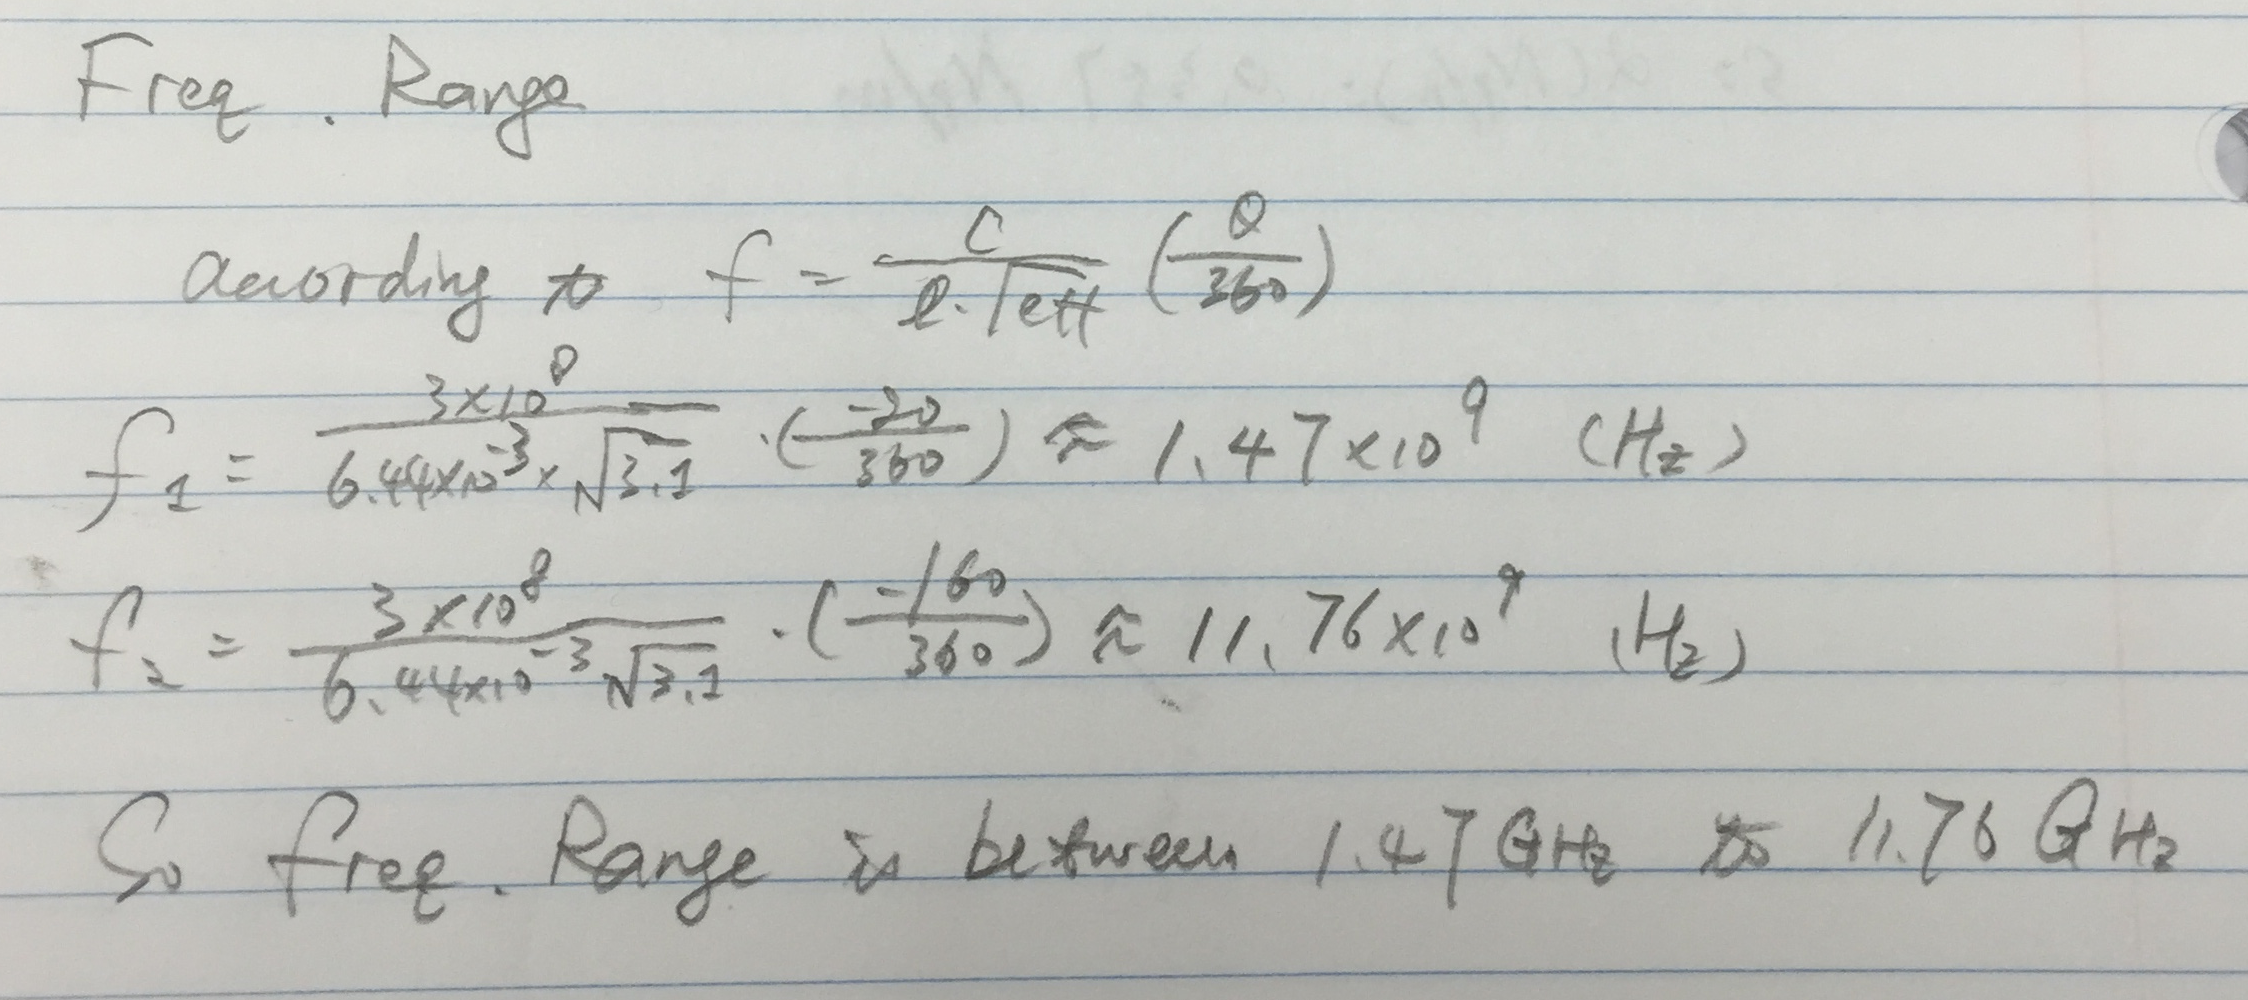 Freq. Range
according to f = c / (l·√eff) (θ/360)
f1 = 3×10^8 / (6.44×10^-3 × √3.1) · (-20/360) ≈ 1.47×10^9 (Hz)
f2 = 3×10^8 / (6.44×10^-3 √3.1) · (-160/360) ≈ 11.76×10^9 (Hz)
So freq. Range is between 1.47 GHz to 11.76 GHz